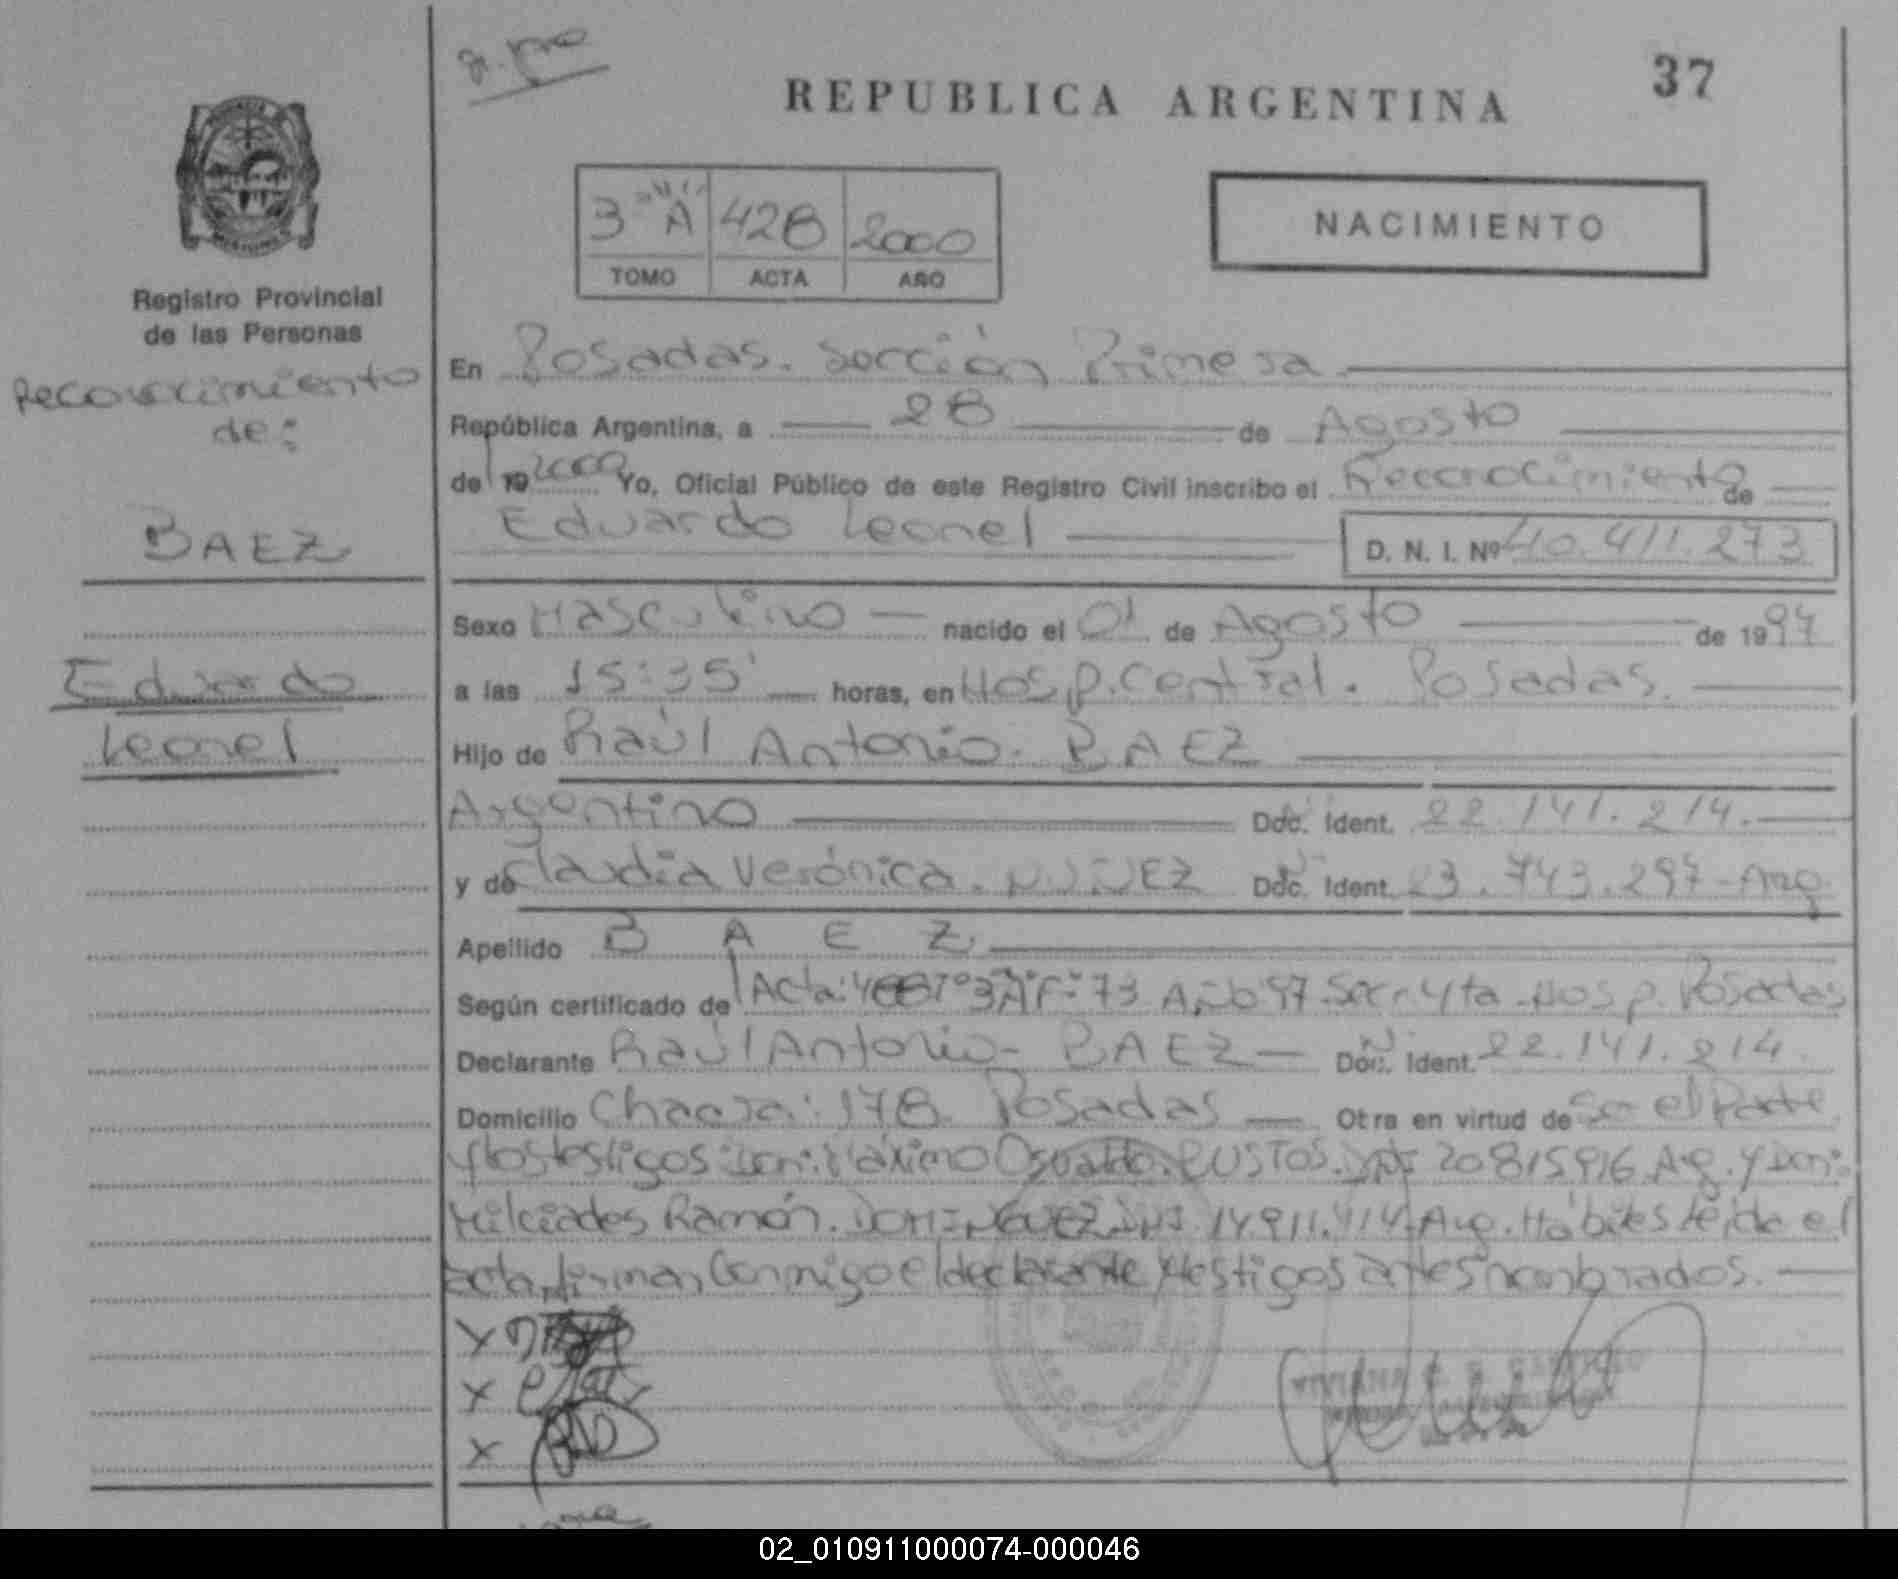 37
REPUBLICA ARGENTINA
3º "A" 428 2000
TOMO ACTA AÑO
NACIMIENTO
Registro Provincial
de las Personas
Reconocimiento
de:
BAEZ
Eduardo
Leonel
En Posadas. Sección Primera
República Argentina, a 28 de Agosto
de 19 2000 Yo, Oficial Público de este Registro Civil inscribo el Reconocimiento de
Eduardo Leonel D. N. I. Nº 40.411.273
Sexo Masculino nacido el 01 de Agosto de 1997
a las 15:35' horas, en Hosp. Central. Posadas.
Hijo de Raúl Antonio. BAEZ
Argentino Doc. Ident. 22.141.214.
y de Claudia Verónica. NUÑEZ Doc. Ident. 23.743.297-Arg.
Apellido BAEZ
Según certificado de Acta: Tº 3 "A" Fº 73 Año 97. Secc. 4ta. Hosp. Posadas
Declarante Raúl Antonio- BAEZ Doc. Ident. 22.141.214.
Domicilio Chacra: 178. Posadas Otra en virtud de Ser el Padre
y los testigos: Don: Máximo Osvaldo. BUSTOS. DNI 20815916 Arg. y Don:
Milciades Ramón. DOMINGUEZ DNI. 14.911.414 Arg. Hábiles leída el
acta, firman conmigo el declarante y testigos antes nombrados.
X
X
X
02_010911000074-000046